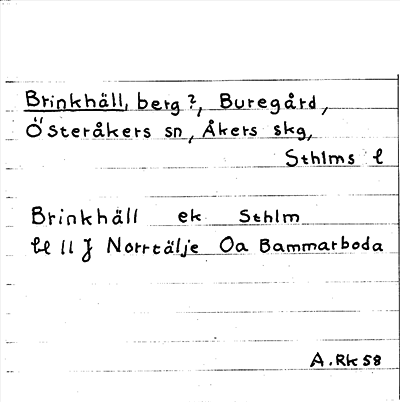 Brinkhäll, berg?, Buregård,
Österåkers sn, Åkers skg,
Sthlms l
Brinkhäll ek Sthlm
11 J Norrtälje Oa Bammarboda
A.Rk 58